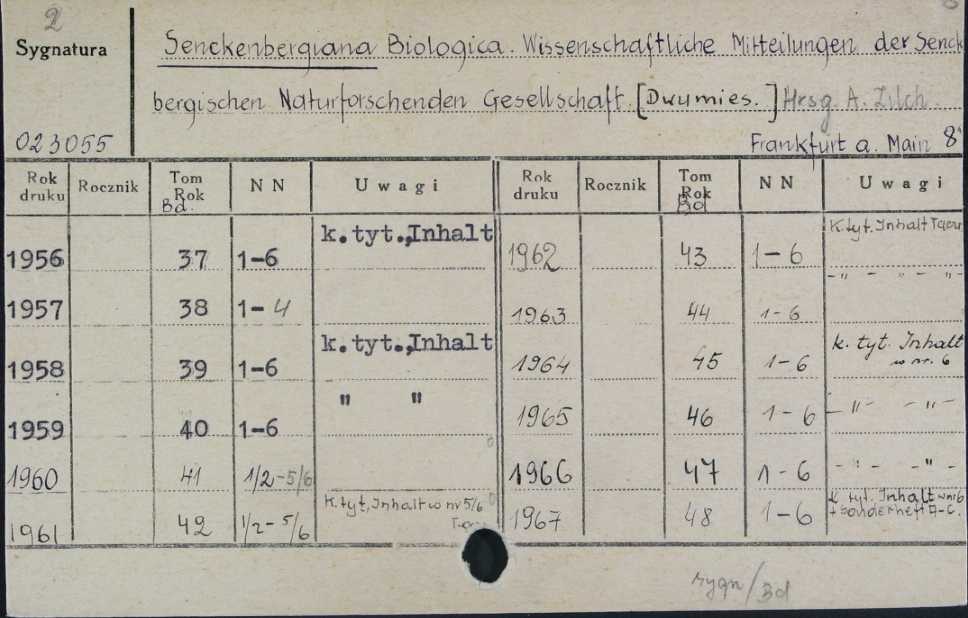 2
Sygnatura
Senckenbergiana Biologica. Wissenschaftliche Mitteilungen der Senck
bergischen Naturforschenden Gesellschaft. [Dwumies.] Hrsg. A. Zilch.
023055
Frankfurt a. Main 8°
Rok druku Rocznik Tom Rok Bd. N N Uwagi Rok druku Rocznik Tom Rok Bd N N Uwagi
1956 37 1-6 k. tyt., Inhalt 1962 43 1-6 K. tyt. Inhalt
-"- -"- -"-
1957 38 1-4 1963 44 1-6
1958 39 1-6 k. tyt., Inhalt 1964 45 1-6 k. tyt. Inhalt w nr. 6
1959 40 1-6 " " 1965 46 1-6 -"- -"-
1960 41 1/2-5/6 1966 47 1-6 -"- -"-
1961 42 1/2-5/6 K. tyt, Inhalt w nr 5/6 1967 48 1-6 K. tyt. Inhalt w nr 6
+ Sonderheft A-C.
rygn/Bd